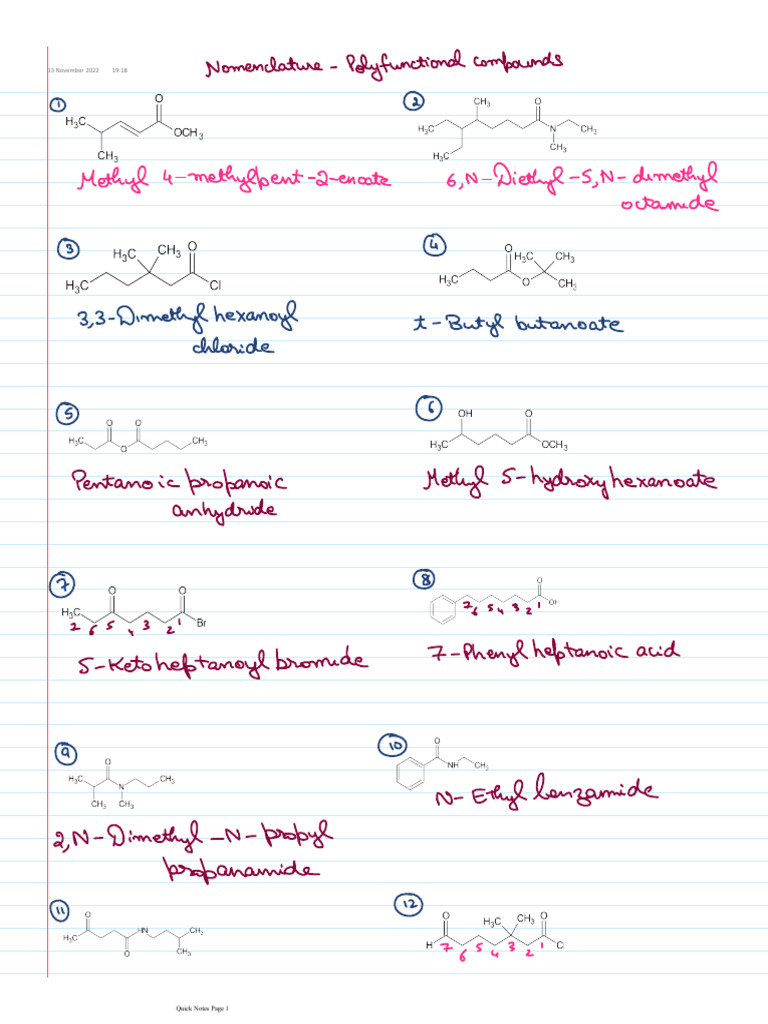 13 November 2022 19:18
Nomenclature - Polyfunctional compounds
1
O
H3C
OCH3
CH3
Methyl 4-methylpent-2-enoate
2
CH3 O
H3C N CH3
H3C CH3
6,N-Diethyl-5,N-dimethyl
octamide
3
H3C CH3 O
H3C Cl
3,3-Dimethyl hexanoyl
chloride
4
O H3C CH3
H3C O CH3
t-Butyl butanoate
5
O O
H3C O CH3
Pentanoic propanoic
anhydride
6
OH O
H3C OCH3
Methyl 5-hydroxyhexanoate
7
O O
H3C Br
7 6 5 4 3 2 1
5-Ketoheptanoyl bromide
8
O
OH
7 6 5 4 3 2 1
7-Phenyl heptanoic acid
9
O
H3C N CH3
CH3 CH3
2,N-Dimethyl-N-propyl
propanamide
10
O
NH CH3
N-Ethyl benzamide
11
O HN CH3
H3C O CH3
12
O H3C CH3 O
H Cl
7 6 5 4 3 2 1
Quick Notes Page 1